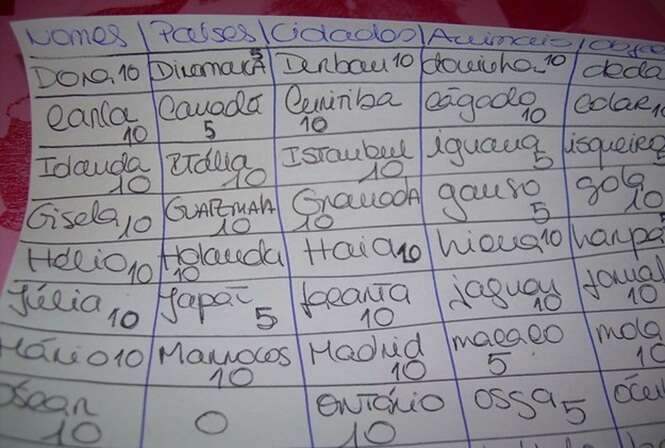 Nomes Países Cidades Animais
Dora 10 Dinamarca 5 Durban 10 doninha 10 deda
Carla 10 Canadá 5 Curitiba 10 cágado 10 colar 10
Iolanda 10 Itália 10 Istanbul 10 iguana 5 isqueiro 5
Gisela 10 10 Granada 10 ganso 5 gola 10
Hélio 10 Holanda 10 Haia 10 hiena 10 harpa
Júlia 10 Japão 5 10 jaguar 10 jornal 10
Mário 10 Marrocos 10 Madrid 10 macaco 5 mola 10
Óscar 10 0 Ontário 10 ossa 5 ócu